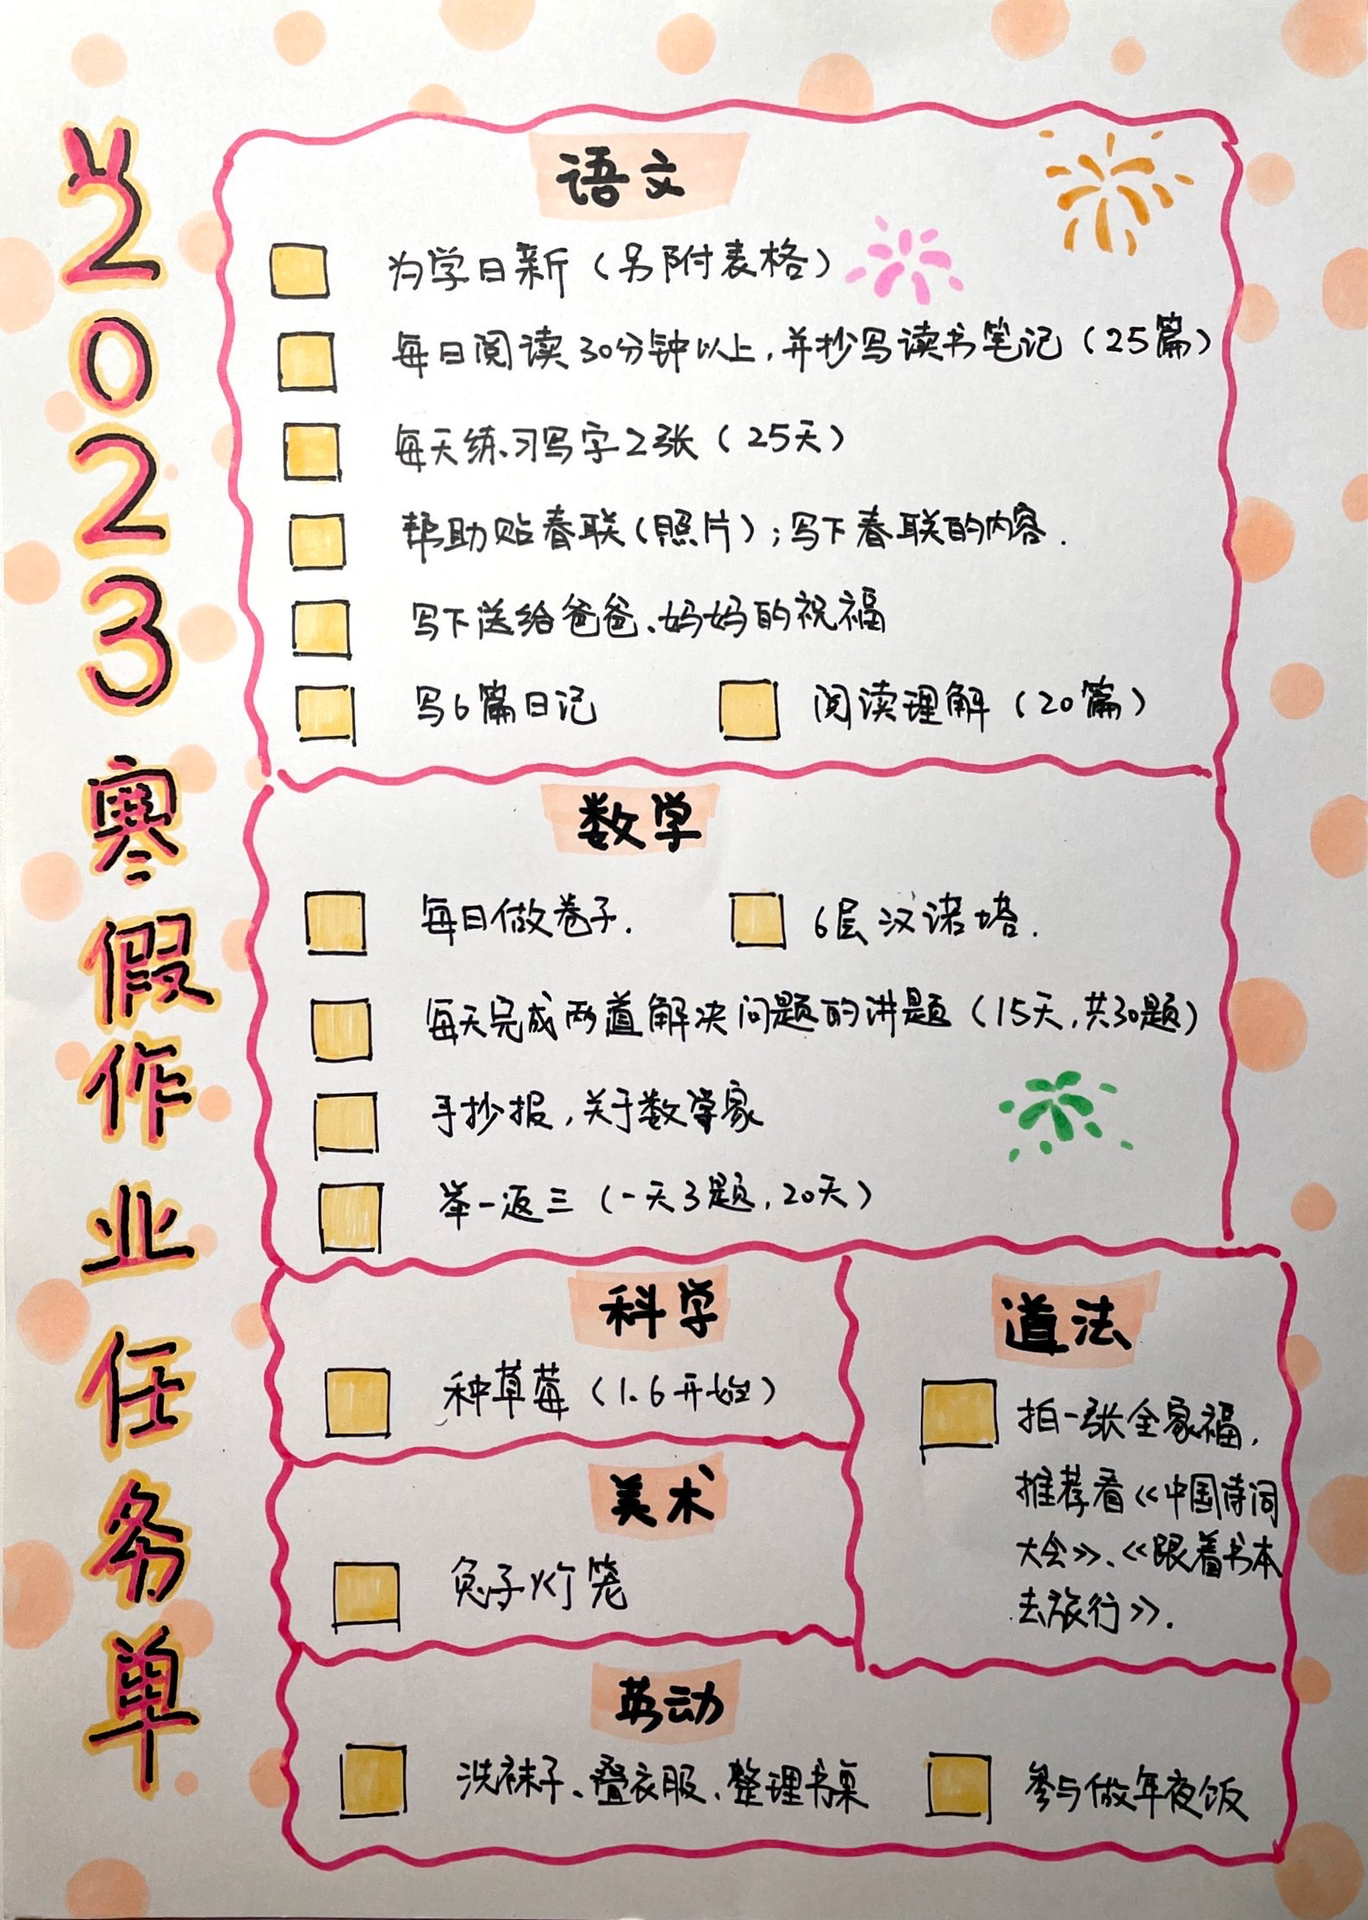 2023寒假作业任务单
语文
为学日新（另附表格）
每日阅读30分钟以上，并抄写读书笔记（25篇）
每天练习写字2张（25天）
帮助贴春联（照片）；写下春联的内容.
写下送给爸爸、妈妈的祝福
写6篇日记 阅读理解（20篇）
数学
每日做卷子. 6层汉诺塔.
每天完成两道解决问题的讲题（15天，共30题）
手抄报，关于数学家
举一返三（一天3题，20天）
科学
种草莓（1.6开始）
美术
兔子灯笼
道法
拍一张全家福，
推荐看《中国诗词
大会》、《跟着书本
去旅行》.
劳动
洗袜子、叠衣服、整理书桌 参与做年夜饭